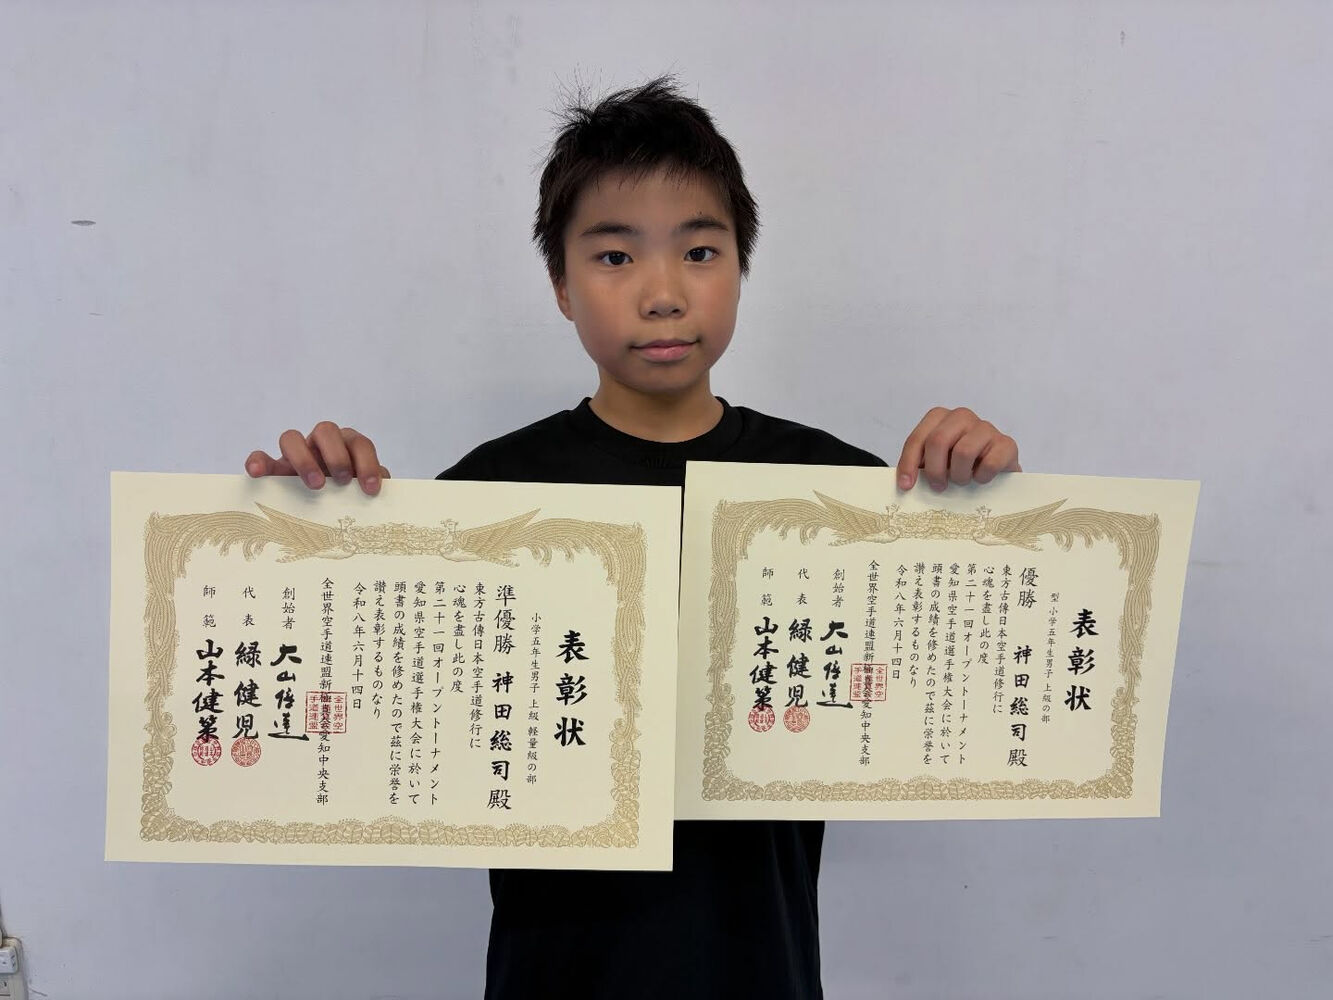 表彰状
小学五年生男子 上級 軽量級の部
準優勝 神田総司殿
東方古傳日本空手道修行に
心魂を盡し此の度
第二十一回オープントーナメント
愛知県空手道選手権大会に於いて
頭書の成績を修めたので茲に栄誉を
讃え表彰するものなり
令和八年六月十四日
全世界空手道連盟新極真会愛知中央支部
創始者 大山倍達
代表 緑健児
師範 山本健策
全世界空
手道連盟
表彰状
型 小学五年生男子 上級の部
優勝 神田総司殿
東方古傳日本空手道修行に
心魂を盡し此の度
第二十一回オープントーナメント
愛知県空手道選手権大会に於いて
頭書の成績を修めたので茲に栄誉を
讃え表彰するものなり
令和八年六月十四日
全世界空手道連盟新極真会愛知中央支部
創始者 大山倍達
代表 緑健児
師範 山本健策
全世界空
手道連盟